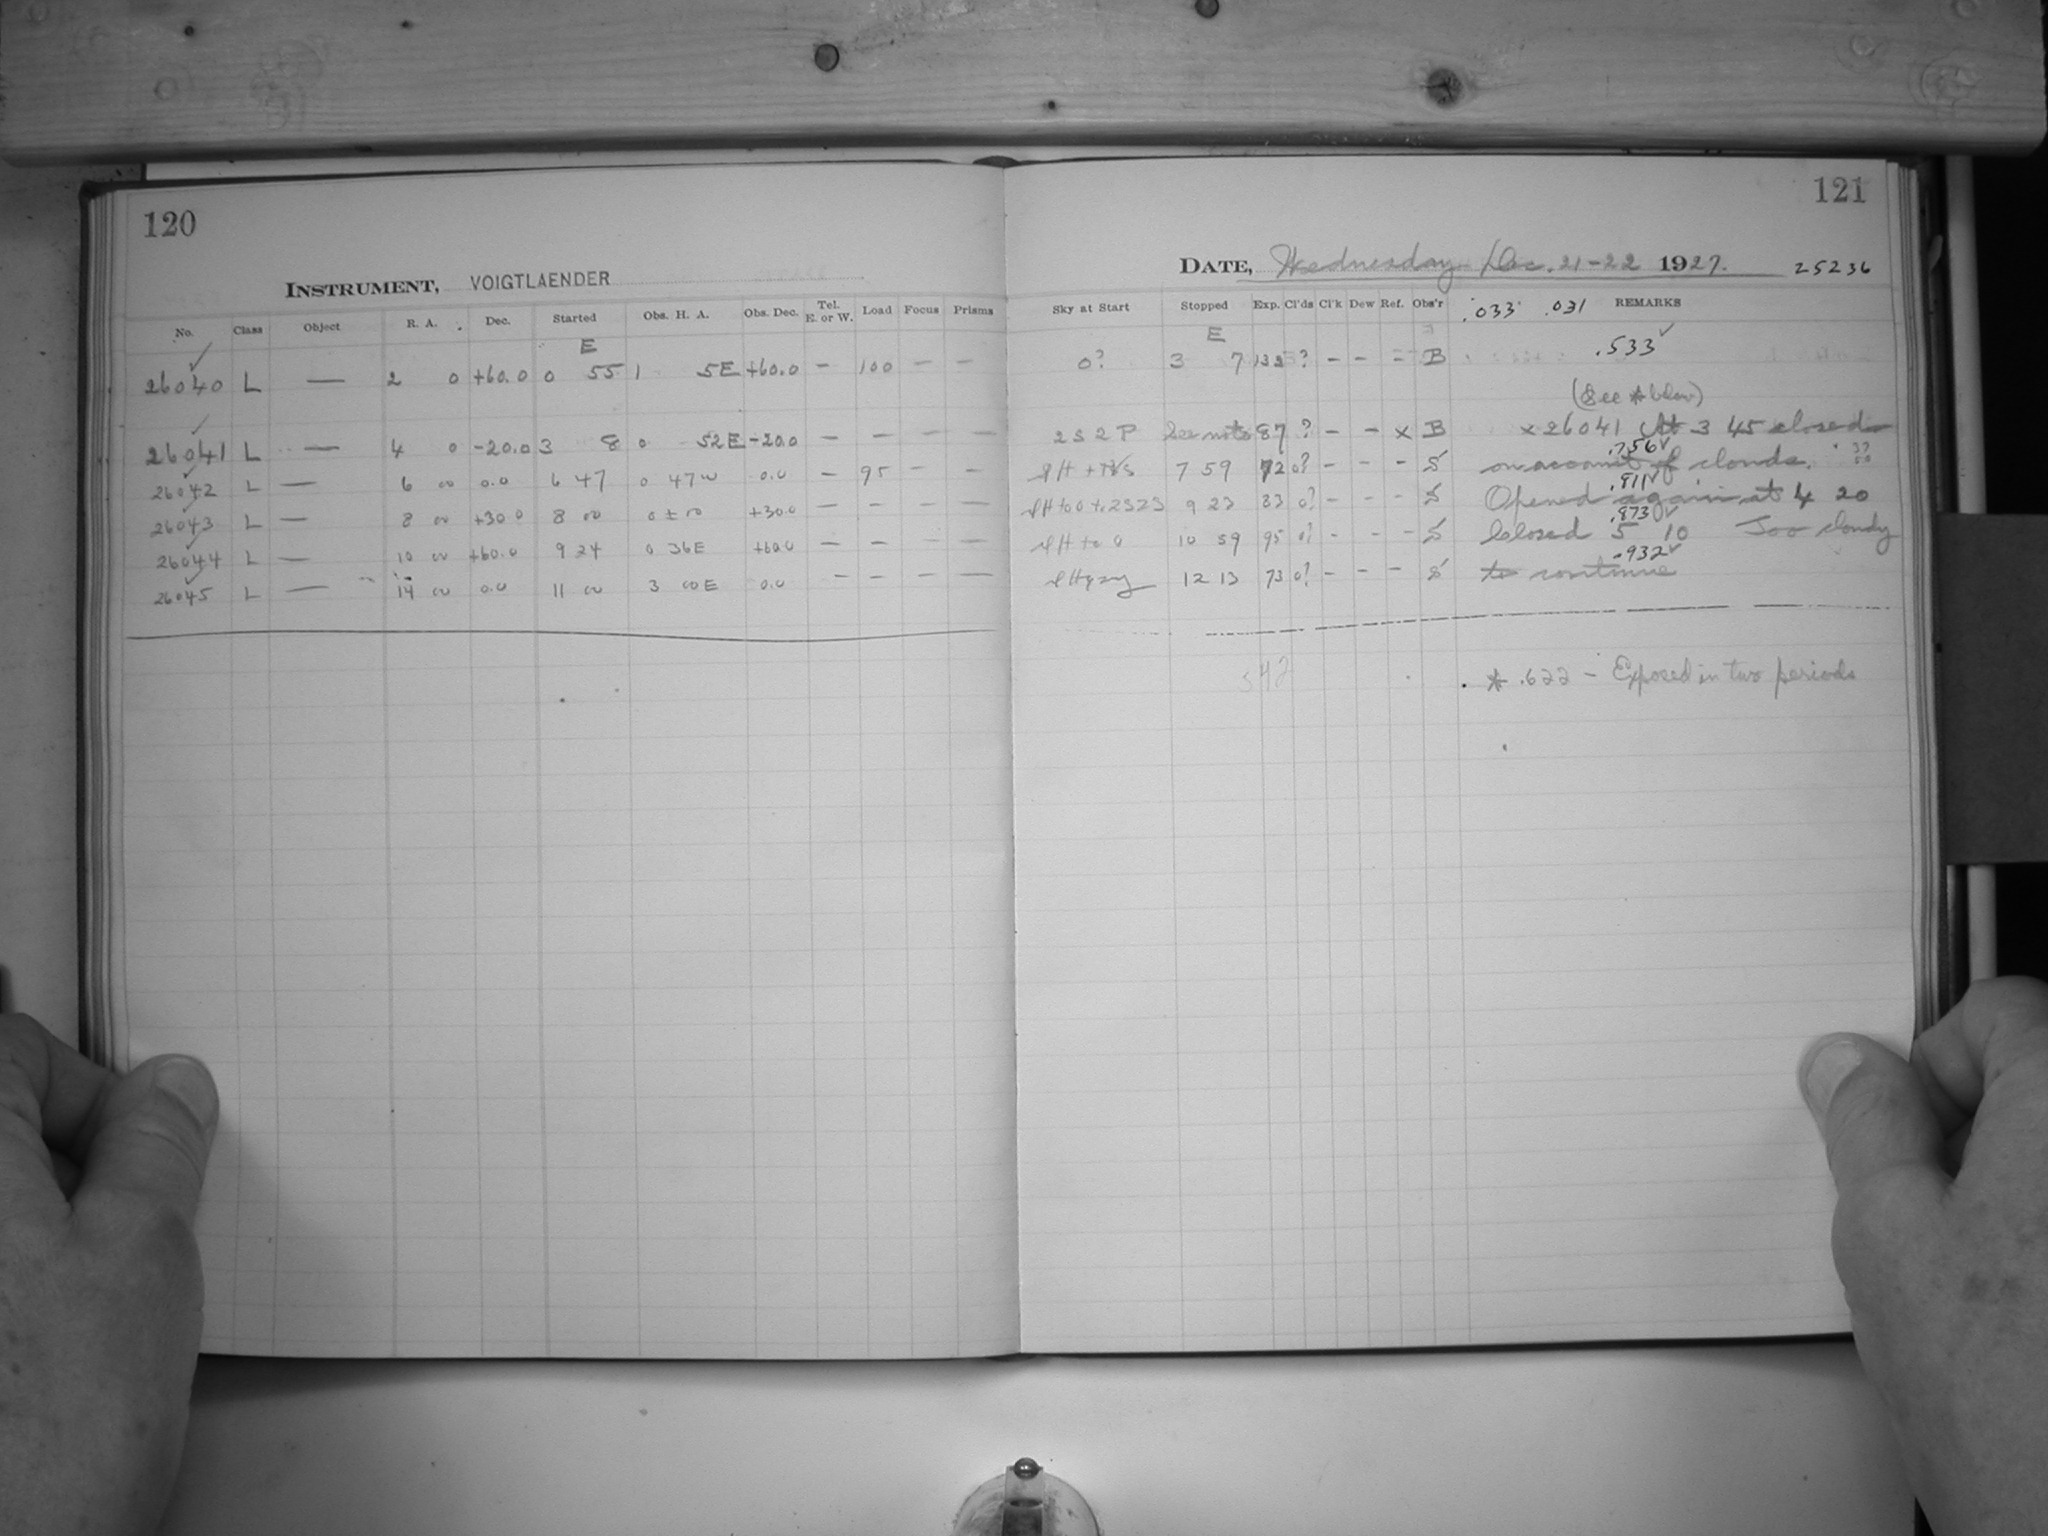 120
INSTRUMENT, VOIGTLAENDER
No. Class Object R. A. Dec. Started Obs. H. A. Obs. Dec. Tel. E. or W. Load Focus Prisms
E
26040 L — 2 0 +60.0 0 55 1 5E +60.0 — 100 — —
26041 L — 4 0 -20.0 3 8 0 52E -20.0 — — — —
26042 L — 6 00 0.0 6 47 0 47W 0.0 — 95 — —
26043 L — 8 00 +30.0 8 00 0 ± 00 +30.0 — — — —
26044 L — 10 00 +60.0 9 24 0 36E +60.0 — — — —
26045 L — 14 00 0.0 11 00 3 00E 0.0 — — — —
121
DATE, Wednesday Dec. 21-22 1927. 25236
Sky at Start Stopped Exp. Cl'ds Cl'k Dew Ref. Obs'r .033 .031 REMARKS
E
0? 3 7 132 ? — — — B .533
(See * below)
2S2P See note 87 ? — — x B x 26041 At 3 45 closed
.756
7 59 72 0? — — — S on account of clouds. 37 50
.811
9 23 83 0? — — — S Opened again at 4 20
.873
10 59 95 0? - - - S Closed 5 10 Too cloudy
.932
12 13 73 0? — — — S to continue
542
* .622 — Exposed in two periods